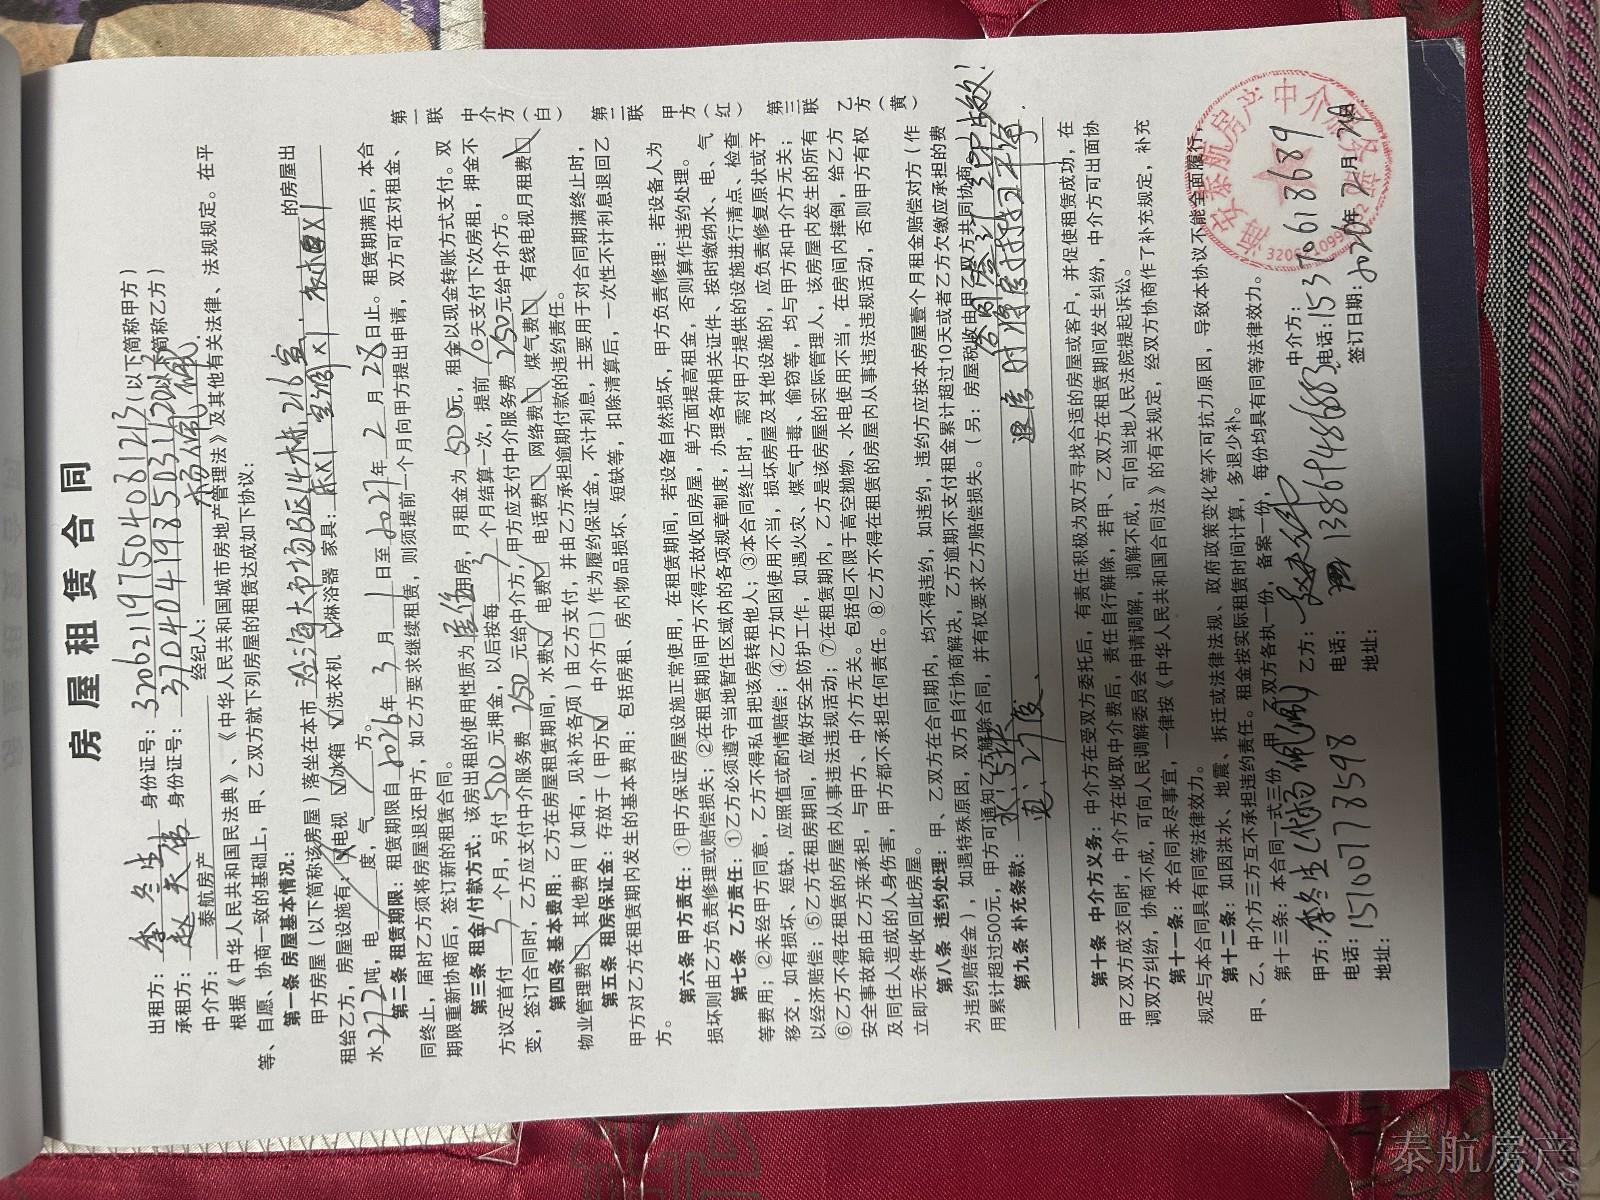 房屋租赁合同
出租方：季冬生 身份证号：320621197504081213（以下简称甲方）
承租方：赵天伟 身份证号：370404198503112（以下简称乙方）
中介方：泰航房产 经纪人：杨佩佩
根据《中华人民共和国民法典》、《中华人民共和国城市房地产管理法》及其他有关法律、法规规定。在平
等、自愿、协商一致的基础上，甲、乙双方就下列房屋的租赁达成如下协议：
第一条 房屋基本情况：
甲方房屋（以下简称该房屋）落坐在本市大市场B区 216室 的房屋出
租给乙方，房屋设施有：电视 冰箱 洗衣机 淋浴器 家具：
水272吨，电 度，气 方。
第二条 租赁期限：租赁期限自2026年3月1日至2027年2月28日止。租赁期满后，本合
同终止，届时乙方须将房屋退还甲方，如乙方要求继续租赁，则须提前一个月向甲方提出申请，双方可在对租金、
期限重新协商后，签订新的租赁合同。
第三条 租金/付款方式：该房出租的使用性质为居住用房，月租金为500元，租金以现金转账方式支付。双
方议定首付3个月，另付500元押金，以后按每3个月结算一次，提前10天支付下次房租，押金不
变，签订合同时，乙方应支付中介服务费250元给中介方，甲方应支付中介服务费250元给中介方。
第四条 基本费用：乙方在房屋租赁期间，水费 电费 电话费 网络费 煤气费 有线电视月租费
物业管理费 其他费用（如有，见补充各项）由乙方支付，并由乙方承担逾期付款的违约责任。
第五条 租房保证金：存放于（甲方 中介方□）作为履约保证金，不计利息，主要用于对合同期满终止时，
甲方对乙方在租赁期内发生的基本费用：包括房租、房内物品损坏、短缺等，扣除清算后，一次性不计利息退回乙
方。
第六条 甲方责任：①甲方保证房屋设施正常使用，在租赁期间，若设备自然损坏，甲方负责修理：若设备人为
损坏则由乙方负责修理或赔偿损失；②在租赁期间甲方不得无故收回房屋，单方面提高租金，否则算作违约处理。
第七条 乙方责任：①乙方必须遵守当地暂住区域内的各项规章制度，办理各种相关证件、按时缴纳水、电、气
等费用；②未经甲方同意，乙方不得私自把该房转租他人；③本合同终止时，需对甲方提供的设施进行清点、检查
移交，如有损坏、短缺，应照值或酌情赔偿；④乙方如因使用不当，损坏房屋及其他设施的，应负责修复原状或予
以经济赔偿；⑤乙方在租房期间，应做好安全防护工作，如遇火灾、煤气中毒、偷窃等，均与甲方和中介方无关；
⑥乙方不得在租赁的房屋内从事违法违规活动；⑦在租赁期内，乙方是该房屋的实际管理人，该房屋内发生的所有
安全事故都由乙方来承担，与甲方、中介方无关。包括但不限于高空抛物、水电使用不当，在房间内摔倒，给乙方
及同住人造成的人身伤害，甲方都不承担任何责任。⑧乙方不得在租赁的房屋内从事违法违规活动，否则甲方有权
立即无条件收回此房屋。
第八条 违约处理：甲、乙双方在合同期内，均不得违约，如违约，违约方应按本房屋壹个月租金赔偿对方（作
为违约赔偿金），如遇特殊原因，双方自行协商解决，乙方逾期不支付租金累计超过10天或者乙方欠缴应承担的费
用累计超过500元，甲方可通知乙方解除合同，并有权要求乙方赔偿损失。（另：房屋税收由甲乙双方共同协商）
第九条 补充条款：
退房时将房打扫干净．
第十条 中介方义务：中介方在受双方委托后，有责任积极为双方寻找合适的房屋或客户，并促使租赁成功，在
甲乙双方成交同时，中介方在收取中介费后，责任自行解除，若甲、乙双方在租赁期间发生纠纷，中介方可出面协
调双方纠纷，协商不成，可向人民调解委员会申请调解，调解不成，可向当地人民法院提起诉讼。
第十一条：本合同未尽事宜，一律按《中华人民共和国合同法》的有关规定，经双方协商作了补充规定，补充
规定与本合同具有同等法律效力。
第十二条：如因洪水、地震、拆迁或法律法规、政府政策变化等不可抗力原因，导致本协议不能全面履行，
甲、乙、中介方三方互不承担违约责任。租金按实际租赁时间计算，多退少补。
第十三条：本合同一式三份，甲、乙双方各执一份，备案一份，每份均具有同等法律效力。
甲方：季冬生（代杨佩佩） 乙方：赵天伟 中介方：
电话：15100778598 电话：13869486883 电话：15370618689
地址： 地址： 签订日期：2026年2月
第一联 中介方（白） 第二联 甲方（红） 第三联 乙方（黄）
海安泰航房产中介服务
泰航房产